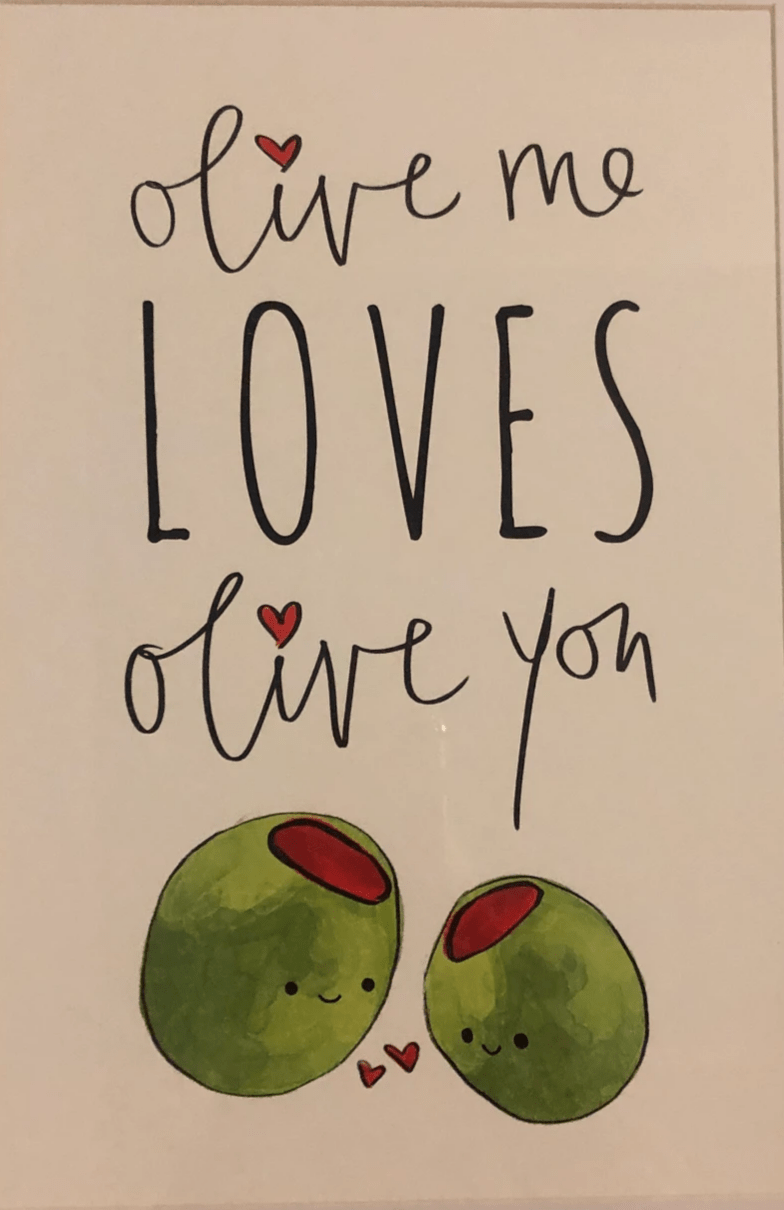 olive me
LOVES
olive you